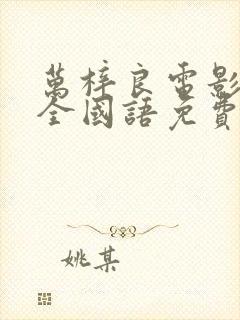 萬梓良電影
全國語免費
姚某